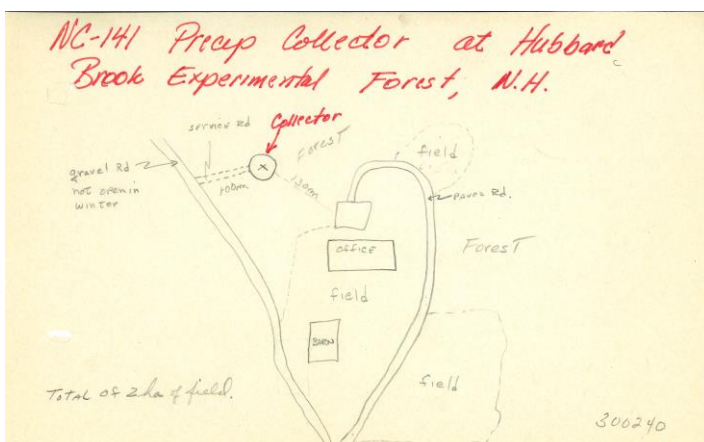 NC-141 Precip Collector at Hubbard
Brook Experimental Forest, N.H.
service Rd
Collector
Forest
field
gravel Rd
not open in
winter
100m
130m
paved Rd.
OFFICE
Forest
field
BARN
field
Total of 2 ha of field.
300240